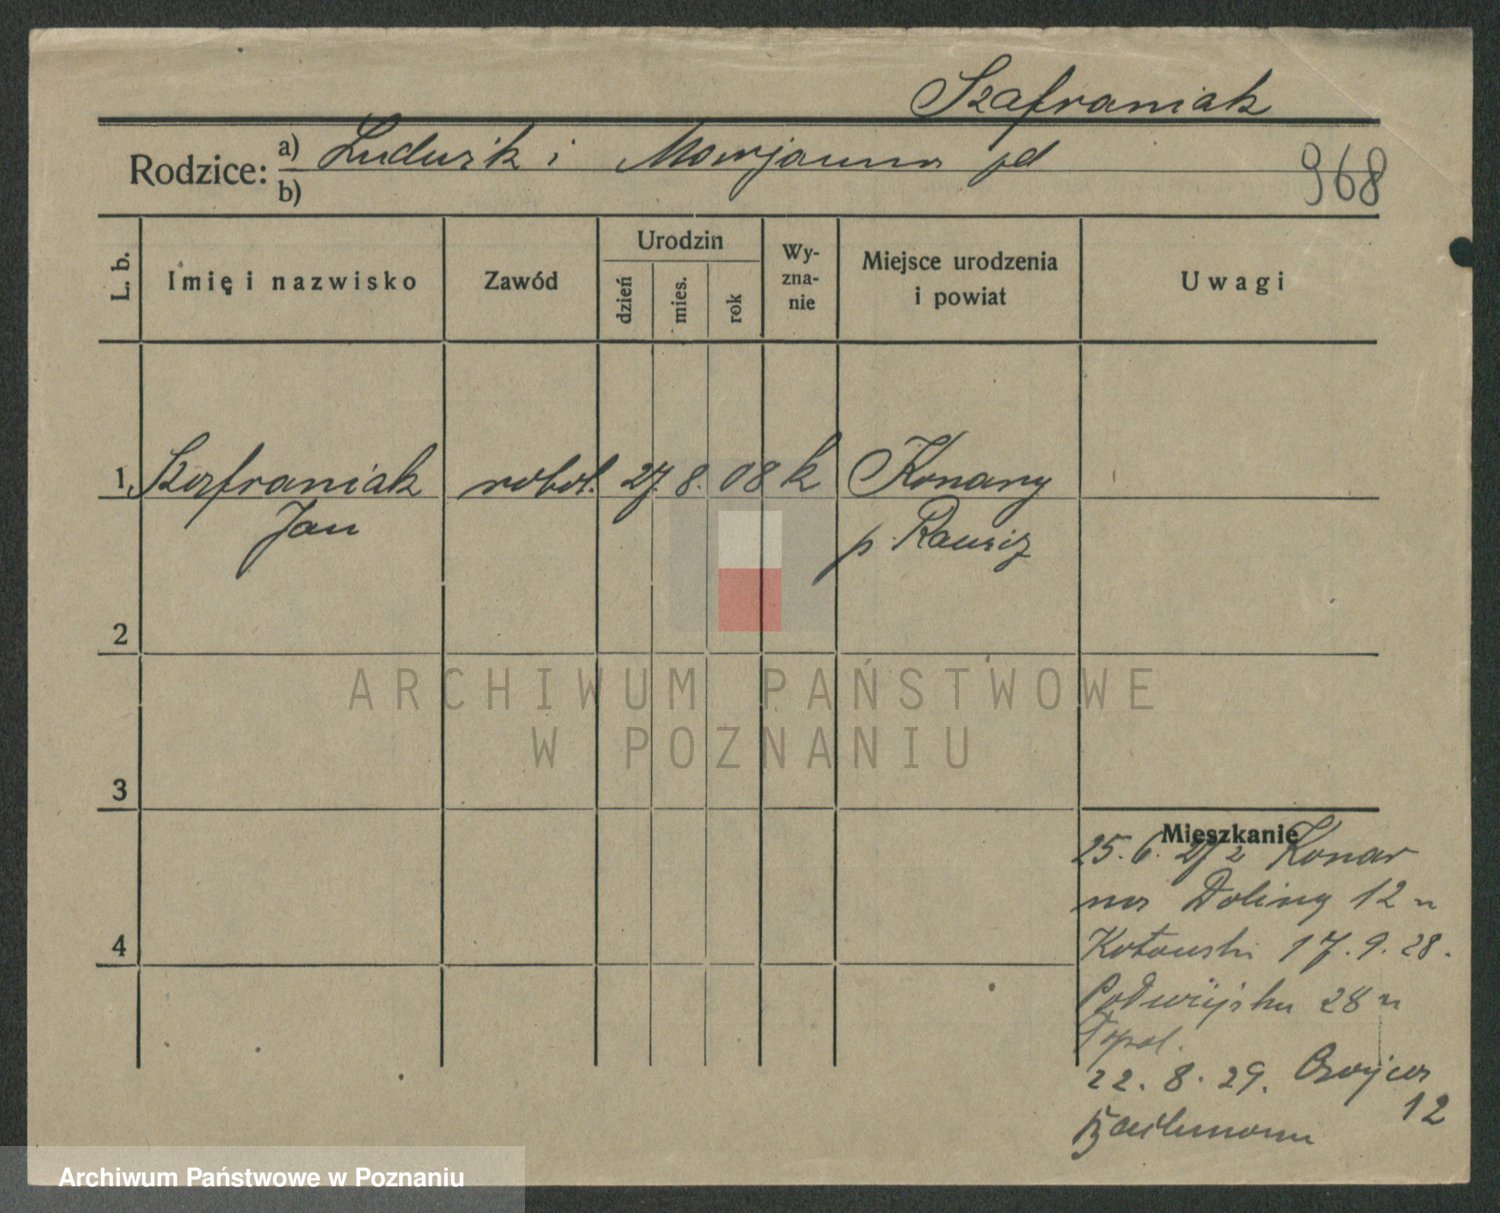 Szafraniak
Rodzice: a) Ludwik i Marjanna jd
b)
968
L. b.
Imię i nazwisko
Zawód
Urodzin
dzień
mies.
rok
Wy-
zna-
nie
Miejsce urodzenia
i powiat
Uwagi
1. Szafraniak robot. 27. 8. 08 k Konary
Jan p. Rawicz
2
ARCHIWUM PAŃSTWOWE
W POZNANIU
3
Mieszkanie
25. 6. 27 z Konar
na Doliny 12 u
17. 9. 28.
28 u
22. 8. 29.
12
4
Archiwum Państwowe w Poznaniu